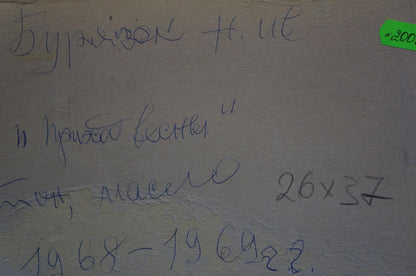 Бурлізон Н. ив
№200
"Приход весны"
тон, масло
26x37
1968-1969 г.г.